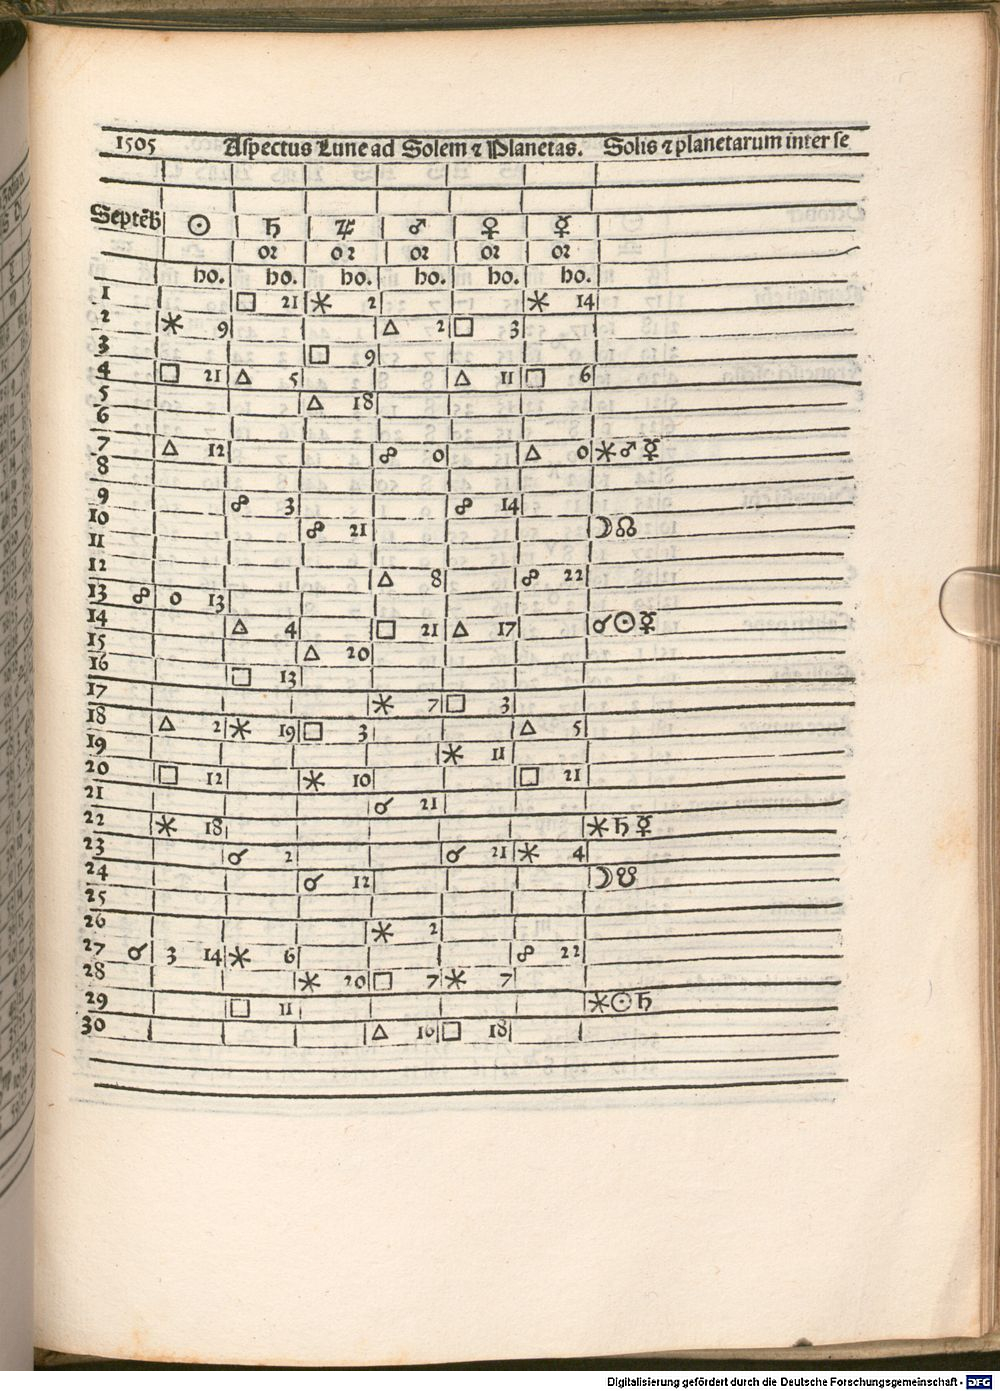 1505 Aspectus Lune ad Solem ⁊ Planetas. Solis ⁊ planetarum inter se
Septēb ☉ ♄ ♃ ♂ ♀ ☿
oꝛ oꝛ oꝛ oꝛ oꝛ
ho. ho. ho. ho. ho. ho.
1 □ 21 ⚹ 2 ⚹ 14
2 ⚹ 9 △ 2 □ 3
3 □ 9
4 □ 21 △ 5 △ 11 □ 6
5 △ 18
6
7 △ 12 ☍ 0 △ 0 ⚹ ♂ ☿
8
9 ☍ 3 ☍ 14
10 ☍ 21 ☽ ☊
11
12 △ 8 ☍ 22
13 ☍ 0 13
14 △ 4 □ 21 △ 17 ☌ ☉ ☿
15 △ 20
16 □ 13
17 ⚹ 7 □ 3
18 △ 2 ⚹ 19 □ 3 △ 5
19 ⚹ 11
20 □ 12 ⚹ 10 □ 21
21 ☌ 21
22 ⚹ 18 ⚹ ♄ ☿
23 ☌ 2 ☌ 21 ⚹ 4
24 ☌ 12 ☽ ☋
25
26 ⚹ 2
27 ☌ 3 14 ⚹ 6 ☍ 22
28 ⚹ 20 □ 7 ⚹ 7
29 □ 11 ⚹ ☉ ♄
30 △ 16 □ 18
Digitalisierung gefördert durch die Deutsche Forschungsgemeinschaft - DFG